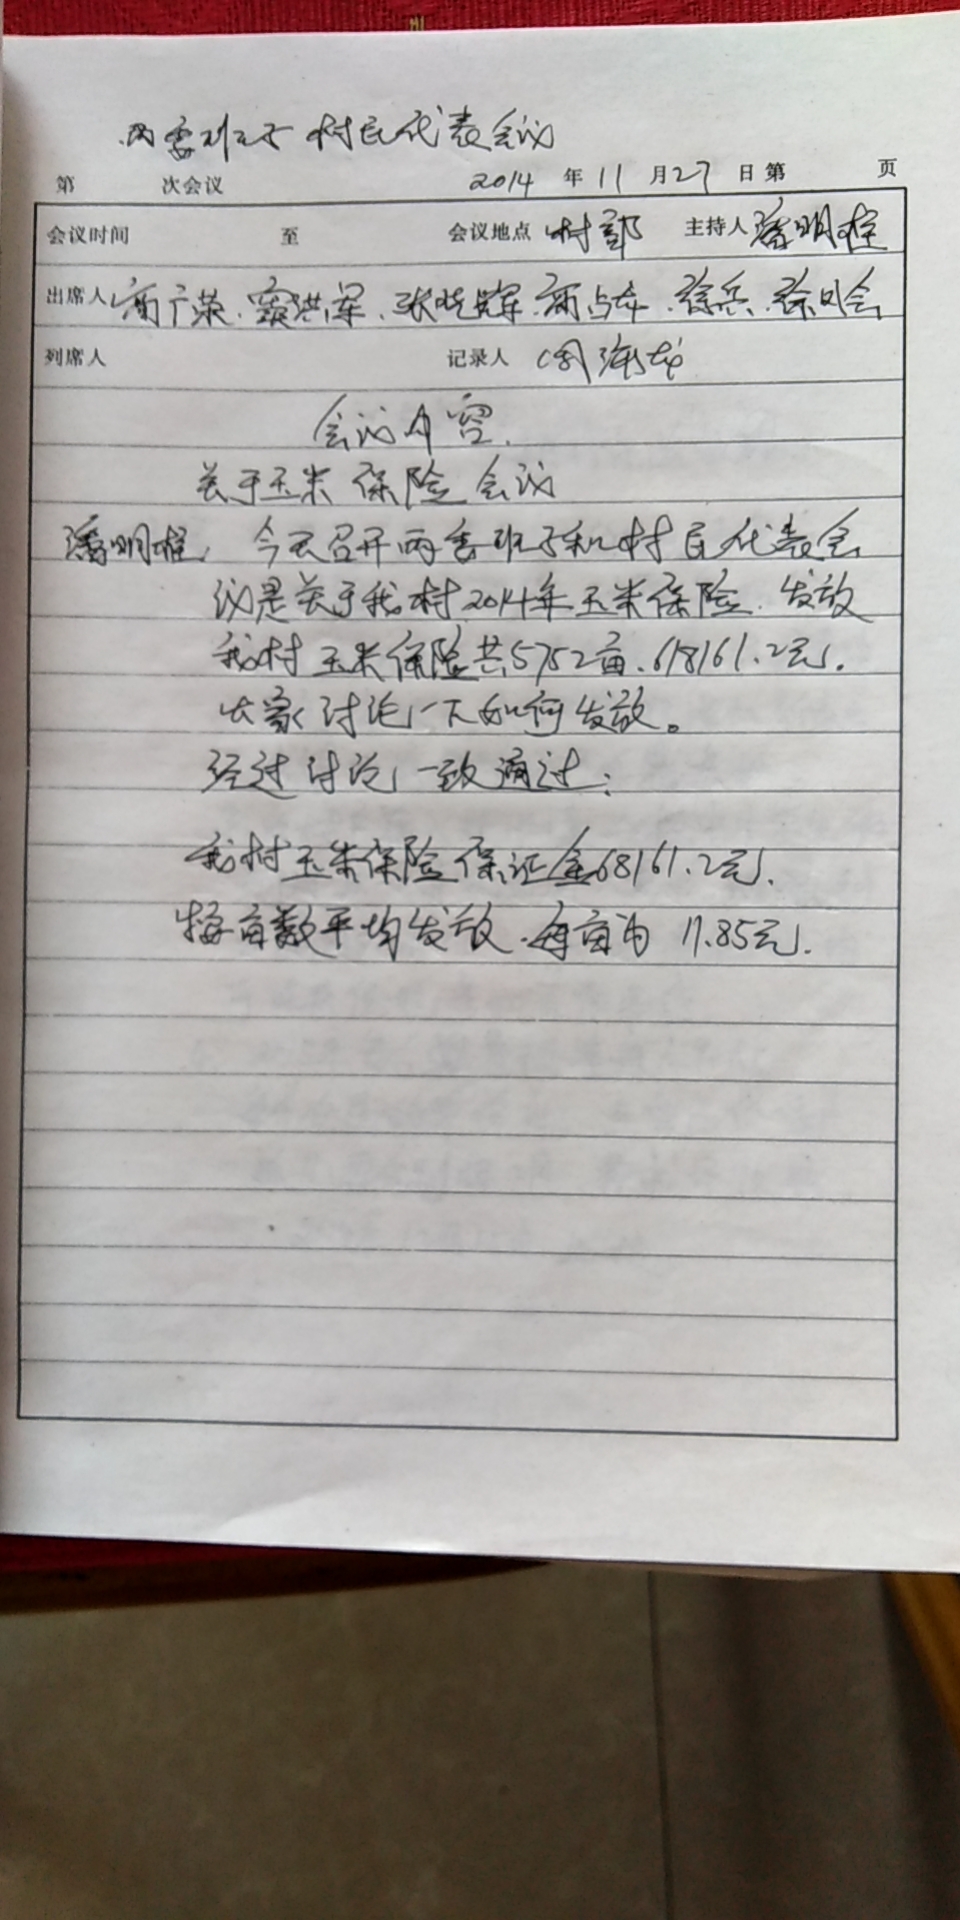 两委班子 村民代表会议
第 次会议 2014 年 11 月 27 日 第 页
会议时间 至 会议地点 村部 主持人 潘明
出席人 广荣、窦洪军、张晓辉、占 、徐兵、徐 会
列席人 记录人 周海龙
会议内容
关于玉米保险会议
潘明 : 今天召开两委班子和村民代表会
议是关于我村2014年玉米保险、发放
我村玉米保险共5752亩、68161.2元.
大家讨论一下如何发放。
经过讨论一致通过:
我村玉米保险保证金68161.2元.
按亩数平均发放.每亩为 11.85元.